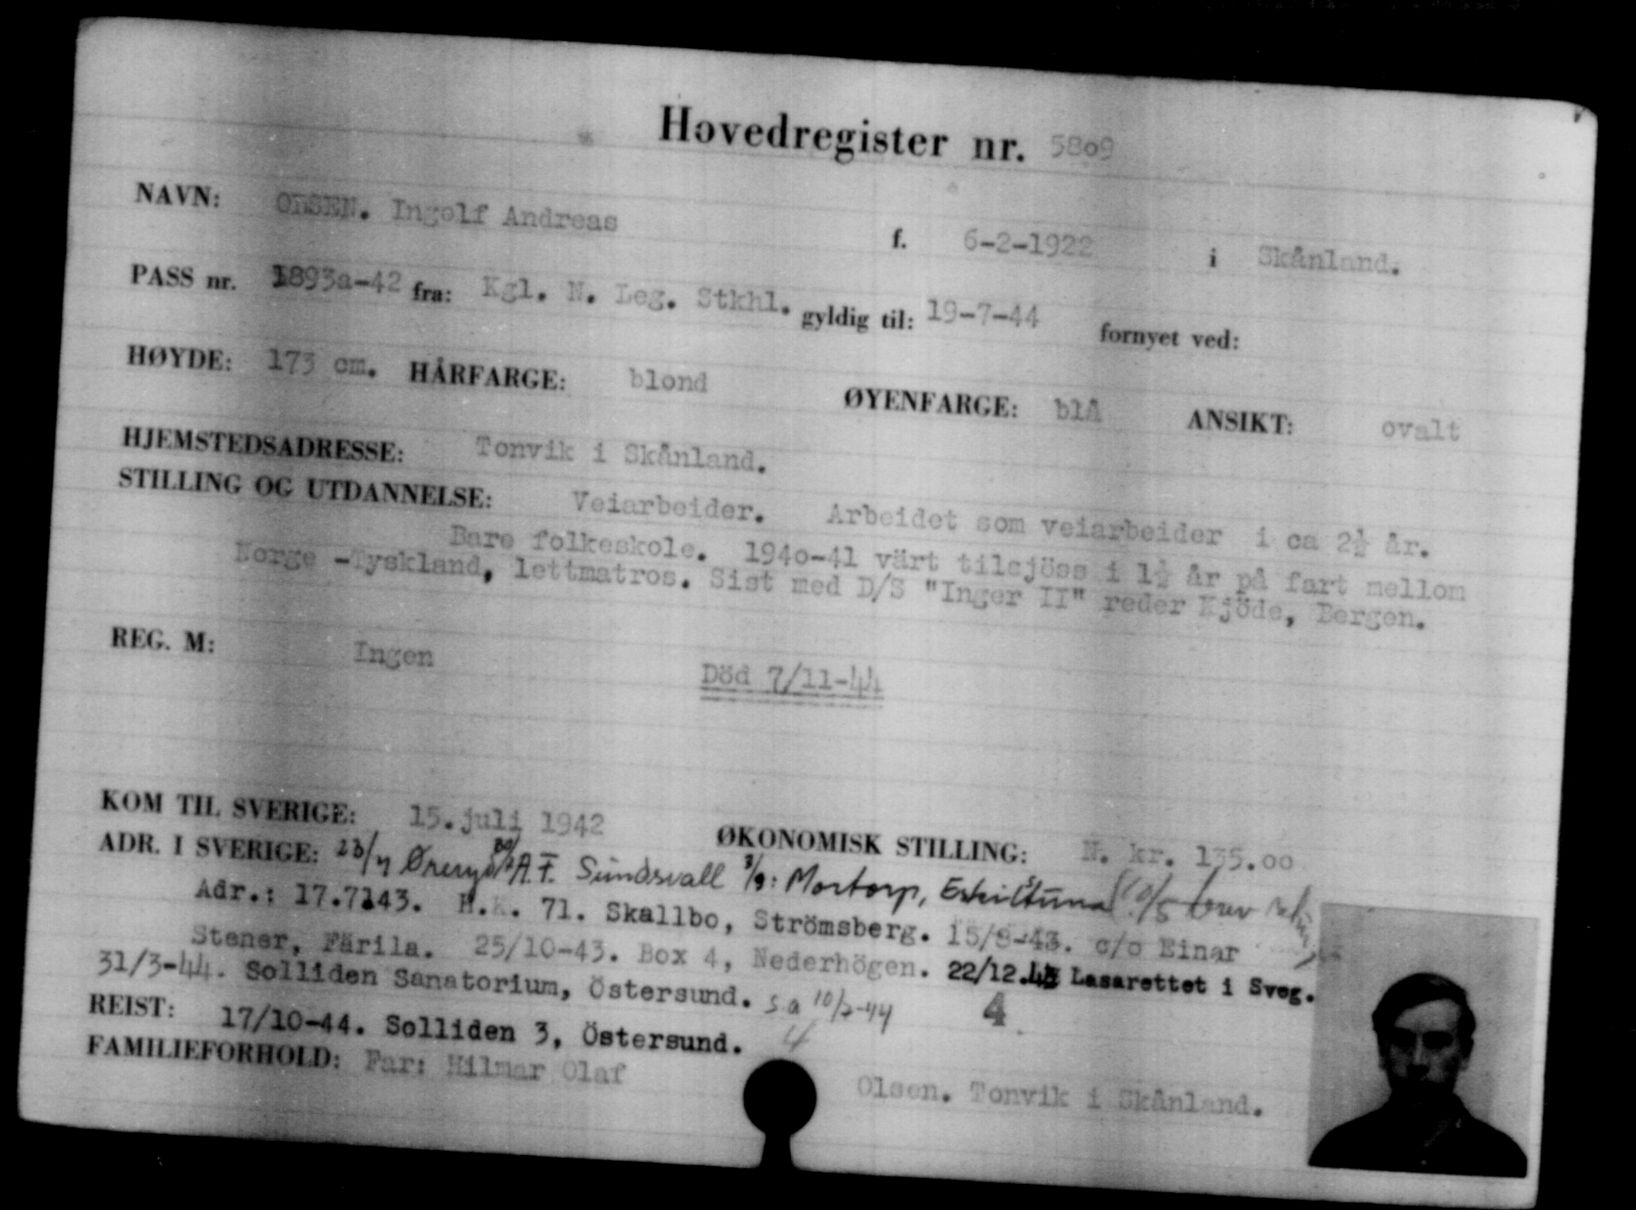 Hovedregister nr. 58o9
NAVN: OLSEN. Ingolf Andreas f. 6-2-1922 i Skånland.
PASS nr. 1893a-42 fra: Kgl. N. Leg. Stkhl. gyldig til: 19-7-44 fornyet ved:
HØYDE: 173 cm. HÅRFARGE: blond ØYENFARGE: blå ANSIKT: ovalt
HJEMSTEDSADRESSE: Tonvik i Skånland.
STILLING OG UTDANNELSE: Veiarbeider. Arbeidet som veiarbeider i ca 2½ år.
Bare folkeskole. 194o-41 värt tilsjöss i 1½ år på fart mellom
Norge -Tyskland, lettmatros. Sist med D/S "Inger II" reder Kjöde, Bergen.
REG. M: Ingen
Död 7/11-44
KOM TIL SVERIGE: 15.juli 1942 ØKONOMISK STILLING: N. kr. 135.oo
ADR. I SVERIGE: 23/7 Øreryd A.F. Sundsvall 3/9: Mortorp, Eskilstuna 10/5 brev
Adr.: 17.7.43. H.K. 71. Skallbo, Strömsberg. 15/8-43. c/o Einar
Stener, Färila. 25/10-43. Box 4, Nederhögen. 22/12.43 Lasarettet i Sveg.
31/3-44. Solliden Sanatorium, Östersund. s.a 10/2-44 4
REIST: 17/10-44. Solliden 3, Östersund. 4
FAMILIEFORHOLD: Far: Hilmar Olaf Olsen. Tonvik i Skånland.